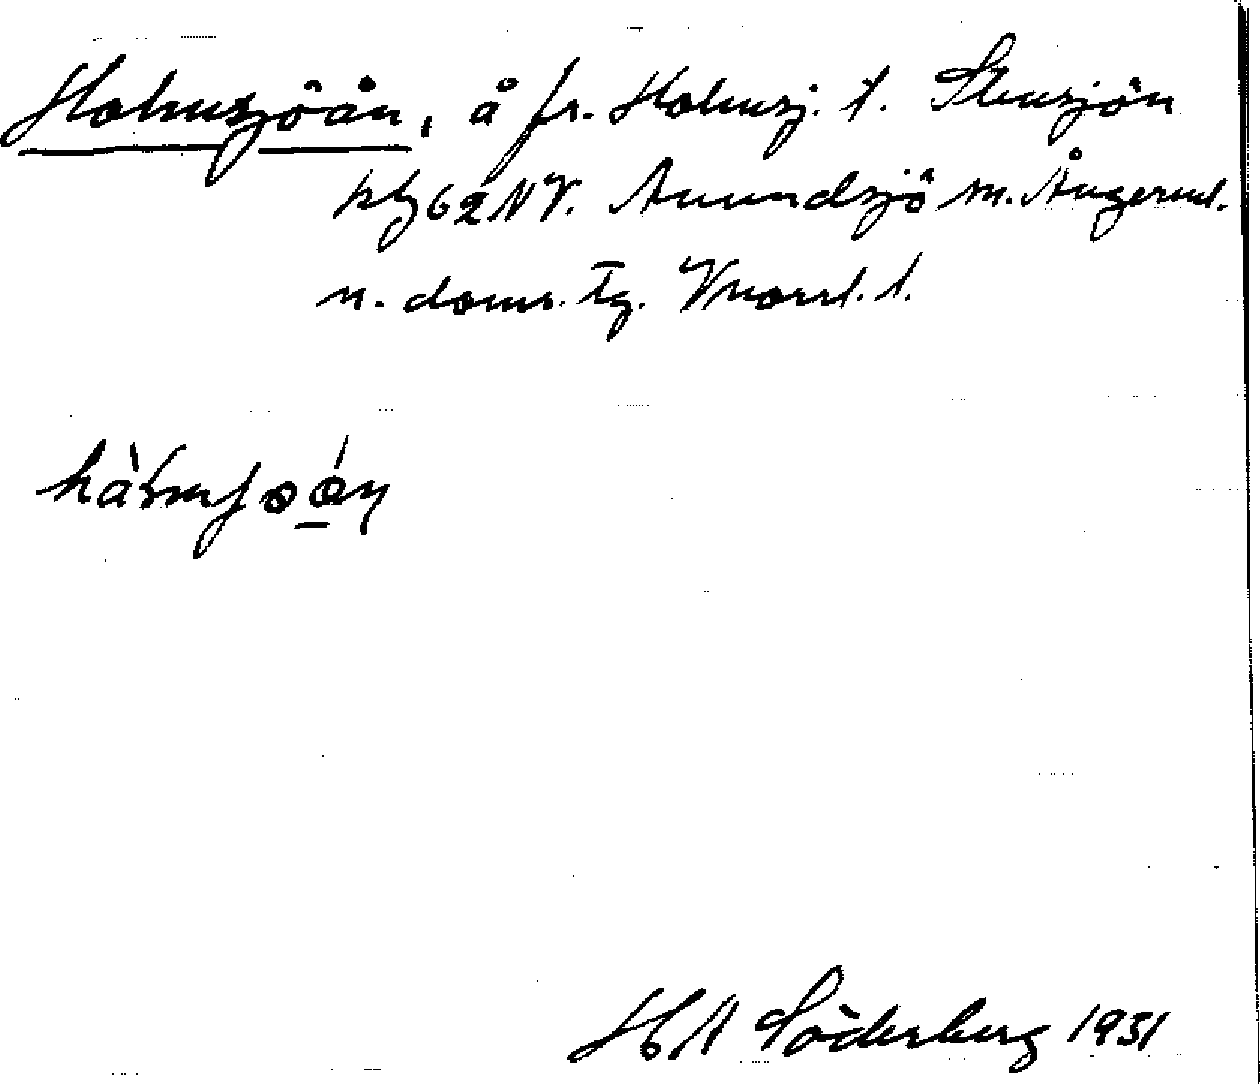 Holmsjöån, å fr. Holmsj. t. Stensjön
kbl 62 NV. Anundsjö sn. Ångerml.
n. doms. Tg. Vnorrl. l.
H A Söderberg 1931